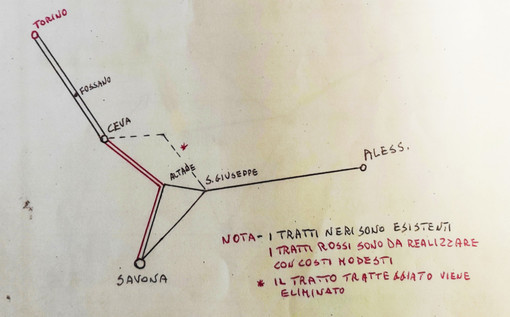 TORINO
FOSSANO
CEVA
*
ALTARE
S.GIUSEPPE
ALESS.
SAVONA
NOTA- I TRATTI NERI SONO ESISTENTI
I TRATTI ROSSI SONO DA REALIZZARE
CON COSTI MODESTI
* IL TRATTO TRATTEGGIATO VIENE
ELIMINATO